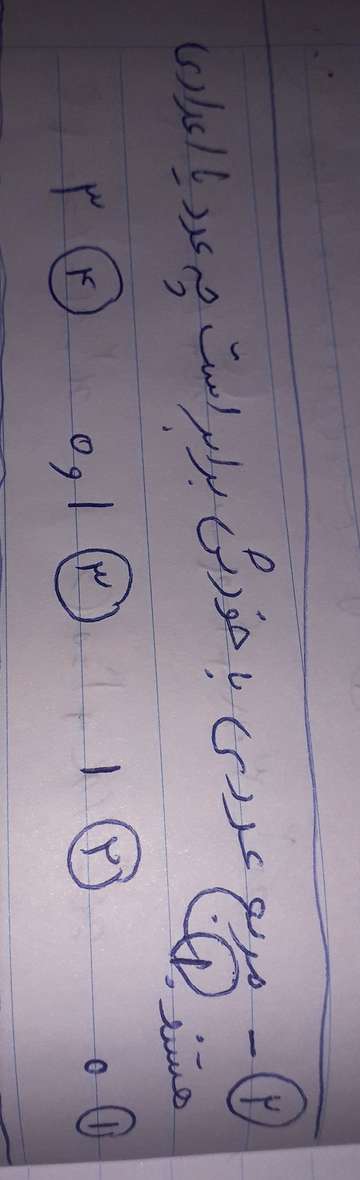 ۲ - مربع عددی با خودش برابر است چه عدد یا اعدادی
هستند.
۱ ۰ ۲ ۱ ۳ ۱ و ۰ ۴ ۳